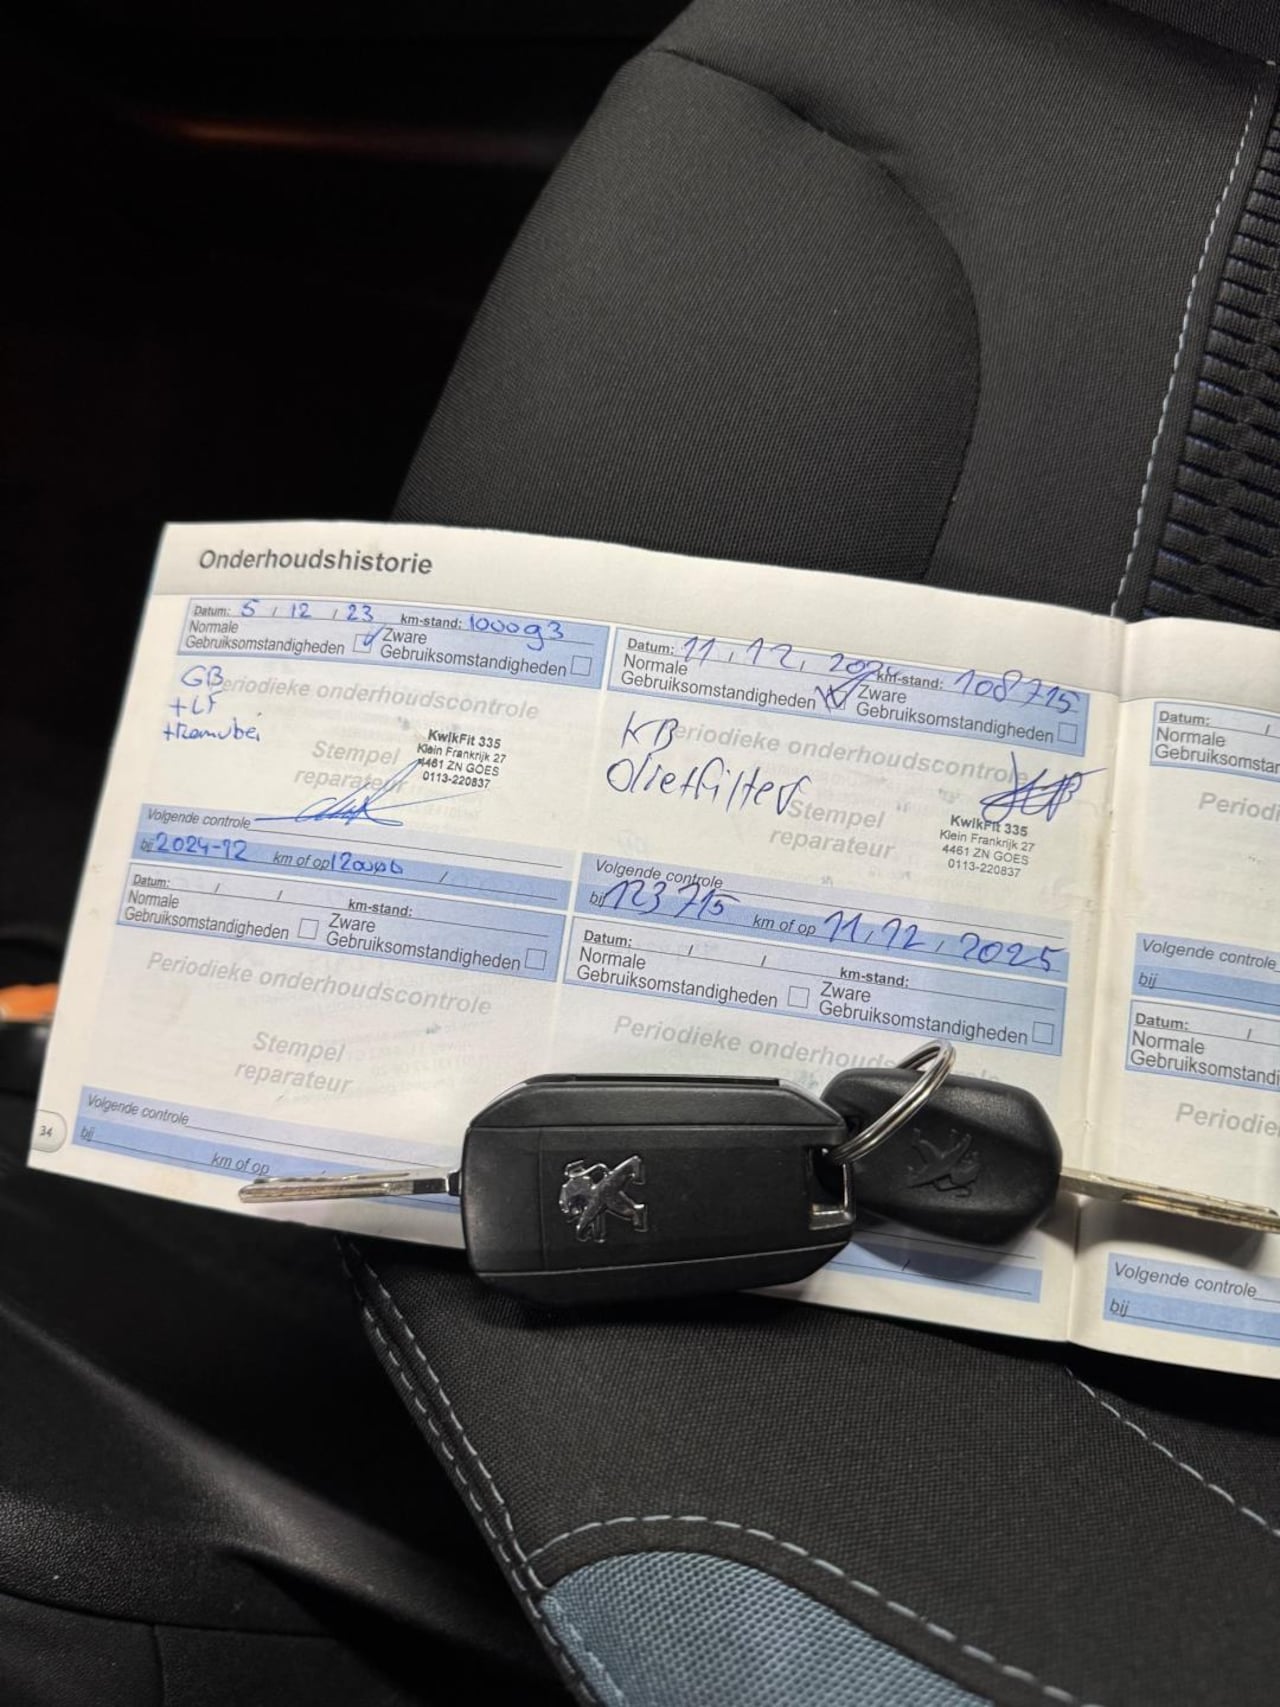 Onderhoudshistorie
Datum: 5 / 12 / 23 km-stand: 100093
Normale
Gebruiksomstandigheden
Zware
Gebruiksomstandigheden
GB
+LF
Periodieke onderhoudscontrole
Stempel
reparateur
KwikFit 335
Klein Frankrijk 27
4461 ZN GOES
0113-220837
Volgende controle
bij 2024-12 km of op 120000 /
Datum: / / km-stand:
Normale
Gebruiksomstandigheden
Zware
Gebruiksomstandigheden
Periodieke onderhoudscontrole
Stempel
reparateur
Volgende controle
bij
km of op
34
Datum: 11, 12, 2024 km-stand: 108715
Normale
Gebruiksomstandigheden
Zware
Gebruiksomstandigheden
KB
Olietfilter
Periodieke onderhoudscontrole
Stempel
reparateur
KwikFit 335
Klein Frankrijk 27
4461 ZN GOES
0113-220837
Volgende controle
bij 123715 km of op 11, 12, 2025
Datum: / / km-stand:
Normale
Gebruiksomstandigheden
Zware
Gebruiksomstandigheden
Periodieke onderhouds
Datum: /
Normale
Gebruiksomstandi
Periodi
Volgende controle
bij
Datum: /
Normale
Gebruiksomstandi
Periodie
Volgende controle
bij